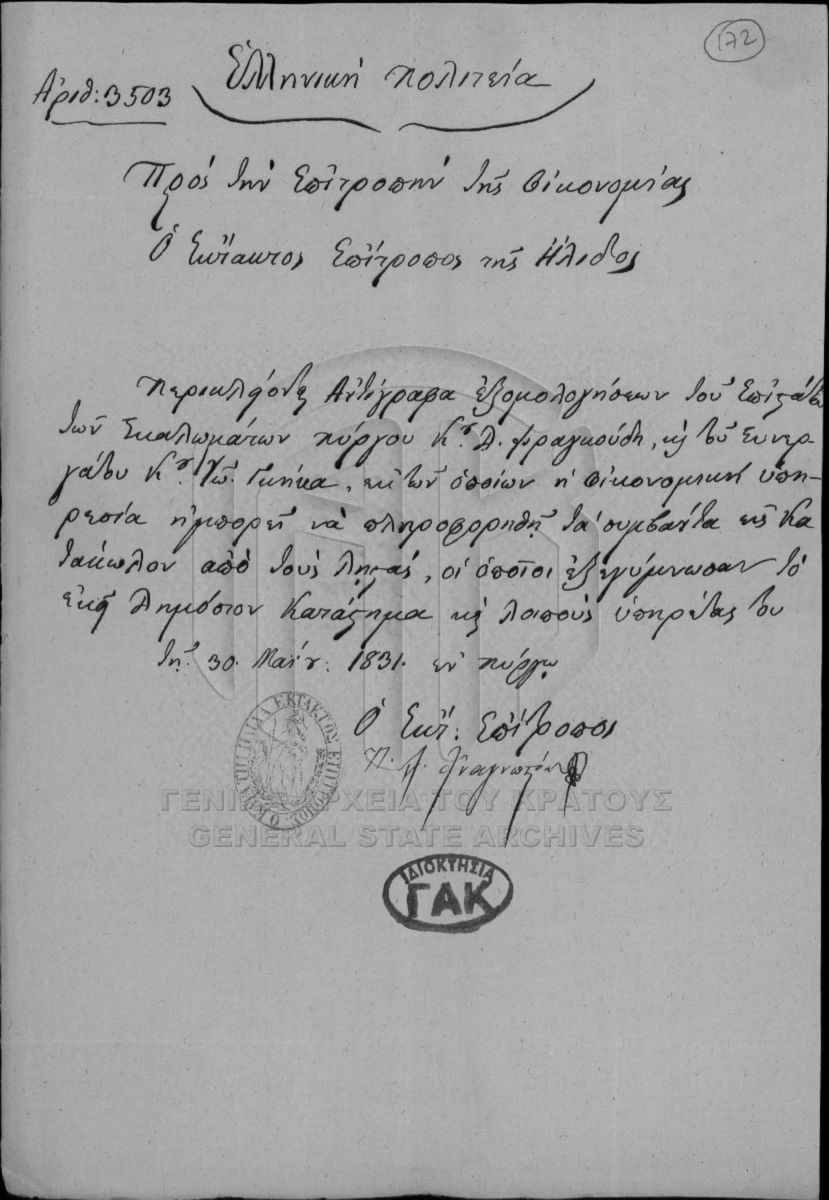 172
Ἀριθ: 3503
Ἑλληνική πολιτεία
Πρός τήν Ἐπιτροπήν τῆς Οἰκονομίας
Ὁ Ἔκτακτος Ἐπίτροπος τῆς Ἤλιδος
Περικλείονται Ἀντίγραφα ἐξομολογήσεων τοῦ Ἐπιστάτου
τῶν Σκαλωμάτων πύργου Κου. Δ. Φραγκούδη, καὶ τοῦ Συνερ-
γάτου Κου. Ἰω. Γκήκα, ἐκ τῶν ὁποίων ἡ οἰκονομική ὑπη-
ρεσία ἠμπορεῖ νά πληροφορηθῇ τά συμβάντα εἰς Κα
τάκωλον ἀπό τούς ληστάς, οἱ ὁποῖοι ἐξεγύμνωσαν τό
ἐκεῖ Δημόσιον Κατάστημα καὶ λοιπούς ὑπηρέτας του
τῇ 30. Μαΐου. 1831. ἐν πύργῳ
Ὁ Ἔκτ: Ἐπίτροπος
Π. Α. Ἀναγνωστόπουλος
Ο ΚΑΤΑ ΤΗΝ ΗΛΙΔΑ ΕΚΤΑΚΤΟΣ ΕΠΙΤΡΟΠΟΣ
ΓΕΝΙΚΑ ΑΡΧΕΙΑ ΤΟΥ ΚΡΑΤΟΥΣ
GENERAL STATE ARCHIVES
ΙΔΙΟΚΤΗΣΙΑ
ΓΑΚ